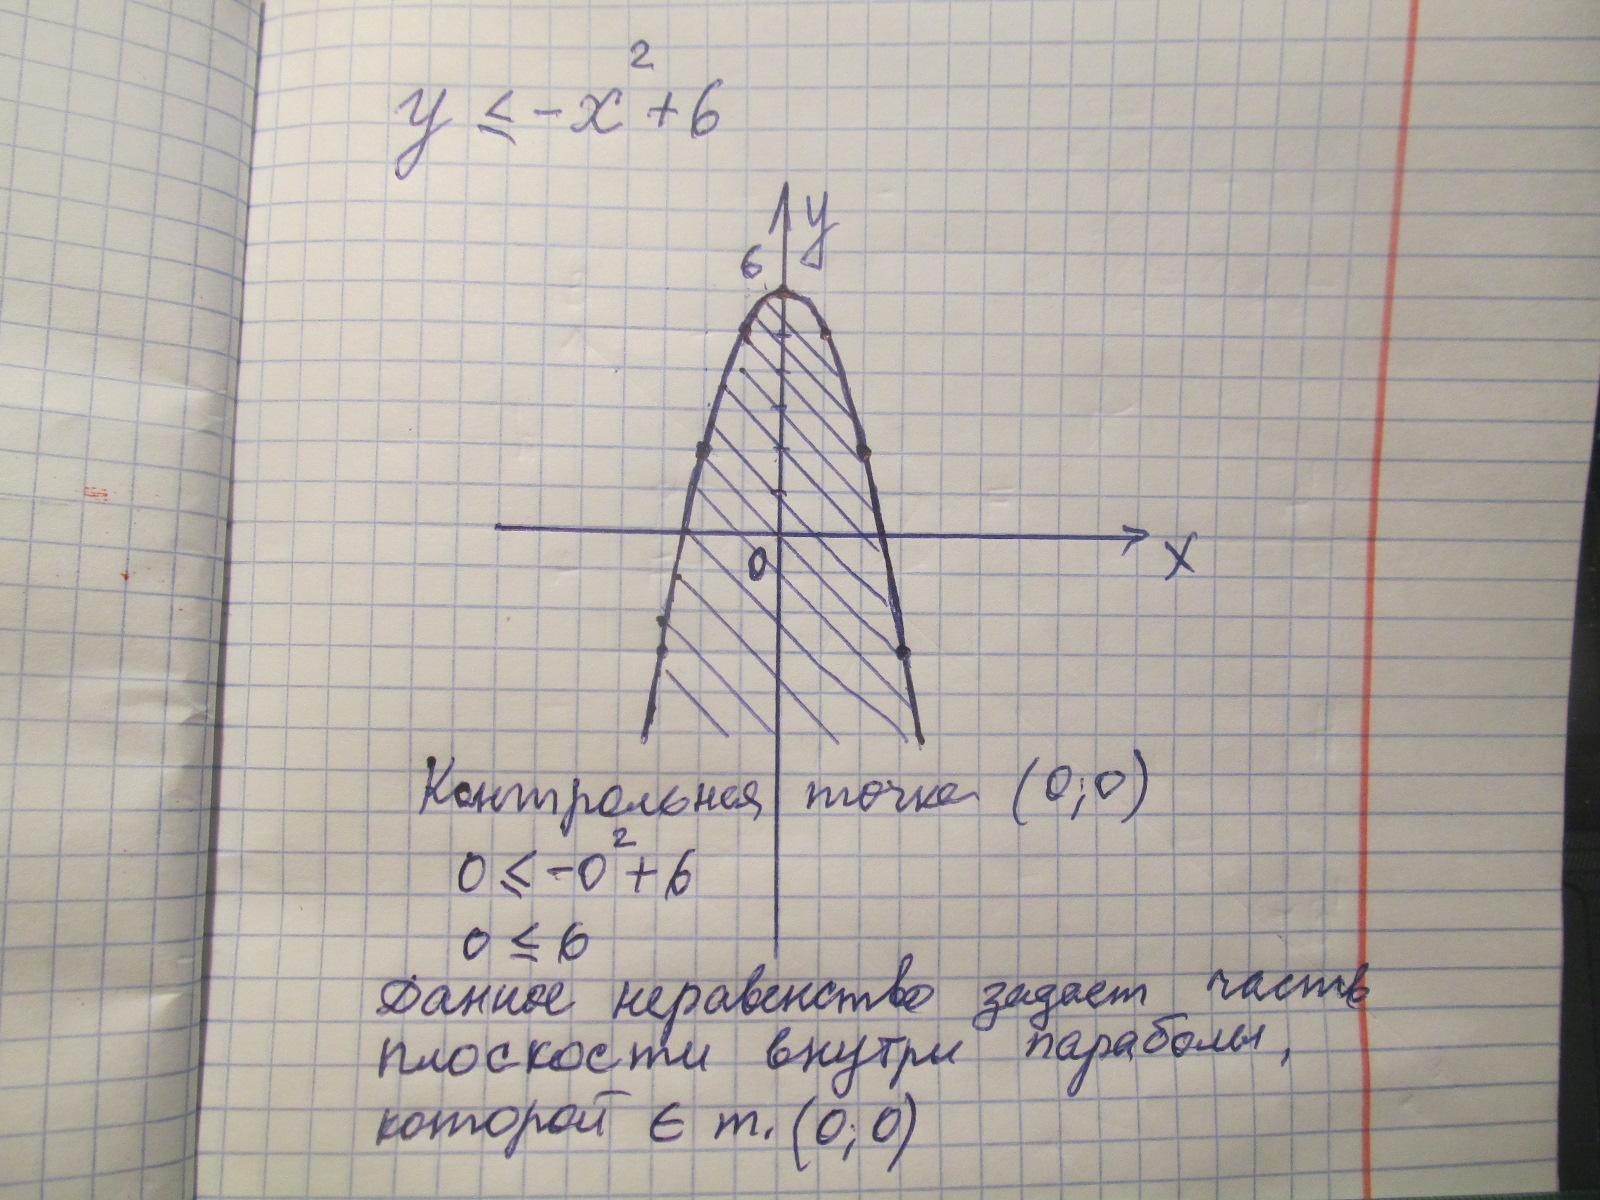 y ≤ -x² + 6
y
6
0
x
Контрольная точка (0;0)
0 ≤ -0² + 6
0 ≤ 6
Данное неравенство задает часть
плоскости внутри параболы,
которой ∈ т. (0;0)